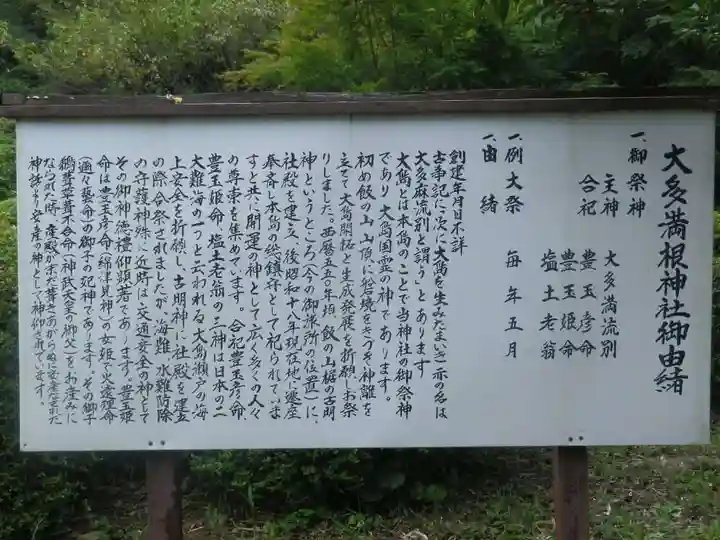 大多満根神社御由緒
一、御祭神
主神　大多満流別
合祀　豊玉彦命
豊玉姫命
塩土老翁
一、例大祭　毎年五月
一、由緒
創建年月日不詳
古事記に「次に大島を生みたまいき亦の名は
大多麻流別と謂う」とあります
大島とは本島のことで当神社の御祭神
であり大島国霊の神であります。
初め飯の山山頂に磐境をきづき神籬を
立てて大島開拓と生成発展を祈願しお祭
りしました。西暦五五〇年頃飯の山裾の古明
神というところ(今の御旅所の位置)に、
社殿を建立、後昭和十八年現在地に遷座
奉斎し本島の総鎮守として祀られていま
すと共に開運の神として広く多くの人々
の尊崇を集めています。合祀豊玉彦命、
豊玉姫命塩土老翁の三神は日本の三
大難海の一つと云われる大島瀬戸の海
上安全を祈願し、古明神に社殿を建立
の際合祭されましたが、海難、水難防除
の守護神殊に近時は交通安全の神として
その御神徳禮仰顕著であります。豊玉姫
命は豊玉彦命(綿津見神)の女姫で火遠理命
(邇々藝命)の御子の妃神であります。その御子
鵜葺草葺不合命(神武天皇の御父)をお産みに
なられた時、産殿が未だ葺きあがらぬに安産なされた
神話より安産の神として神仰されています。